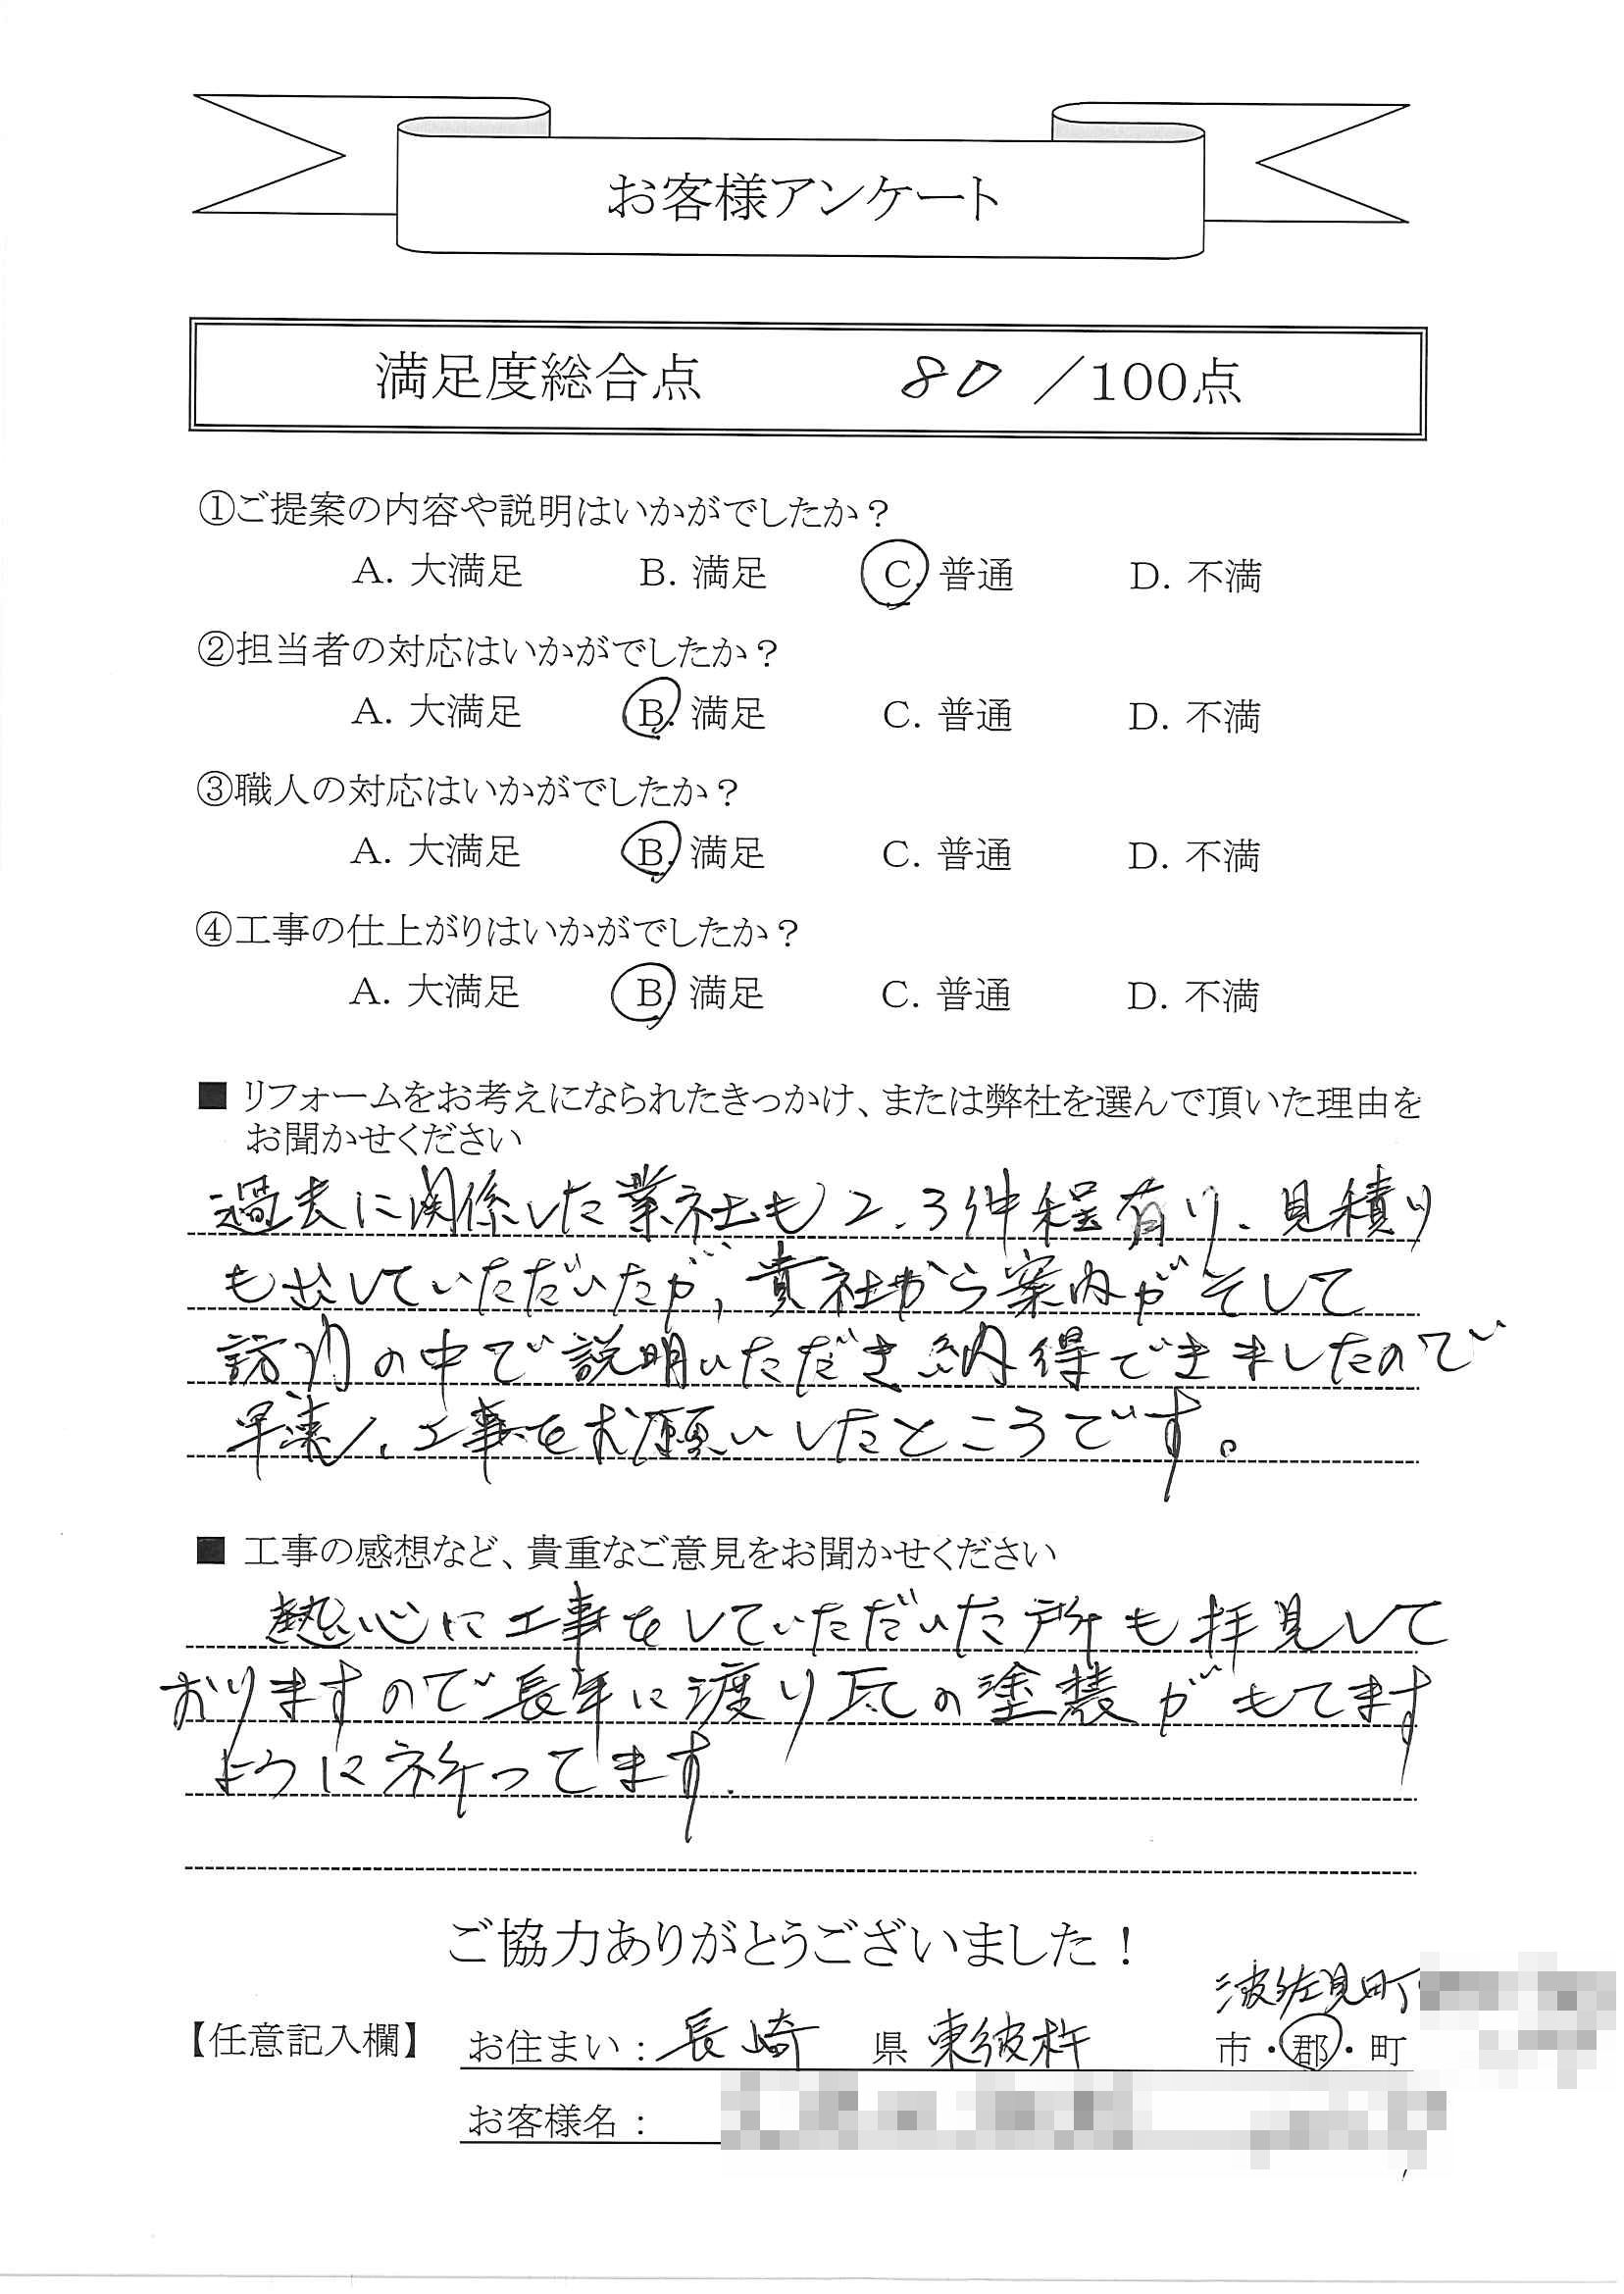 お客様アンケート
満足度総合点 80 /100点
①ご提案の内容や説明はいかがでしたか?
A. 大満足 B. 満足 C. 普通 D. 不満
②担当者の対応はいかがでしたか?
A. 大満足 B. 満足 C. 普通 D. 不満
③職人の対応はいかがでしたか?
A. 大満足 B. 満足 C. 普通 D. 不満
④工事の仕上がりはいかがでしたか?
A. 大満足 B. 満足 C. 普通 D. 不満
■ リフォームをお考えになられたきっかけ、または弊社を選んで頂いた理由を
お聞かせください
過去に関係した業社も2.3件程有り、見積り
も出していただいたが、貴社から案内がそして
訪門の中で説明いただき納得できましたので
早速、工事をお願いしたところです。
■ 工事の感想など、貴重なご意見をお聞かせください
熱心に工事をしていただいた所も拝見して
おりますので長年に渡り瓦の塗装がもてます
ように祈ってます.
ご協力ありがとうございました!
波佐見町
【任意記入欄】 お住まい: 長崎 県 東彼杵 市・郡・町
お客様名: